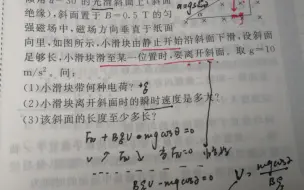 倾角α=30°的光滑斜面上(斜面
绝缘),斜面置于B=0.5 T的匀
强磁场中,磁场方向垂直于纸面
向里,如图所示,小滑块由静止开始沿斜面下滑,设斜面
足够长,小滑块滑至某一位置时,要离开斜面。取g=10
m/s²。问:
(1)小滑块带何种电荷?
(2)小滑块离开斜面时的瞬时速度是多大?
(3)该斜面的长度至少多长?
FN+BqV-mgcosα=0
V↗ FN↘ 当FN=0
BqV-mgcosα=0
V=mgcosα/Bq